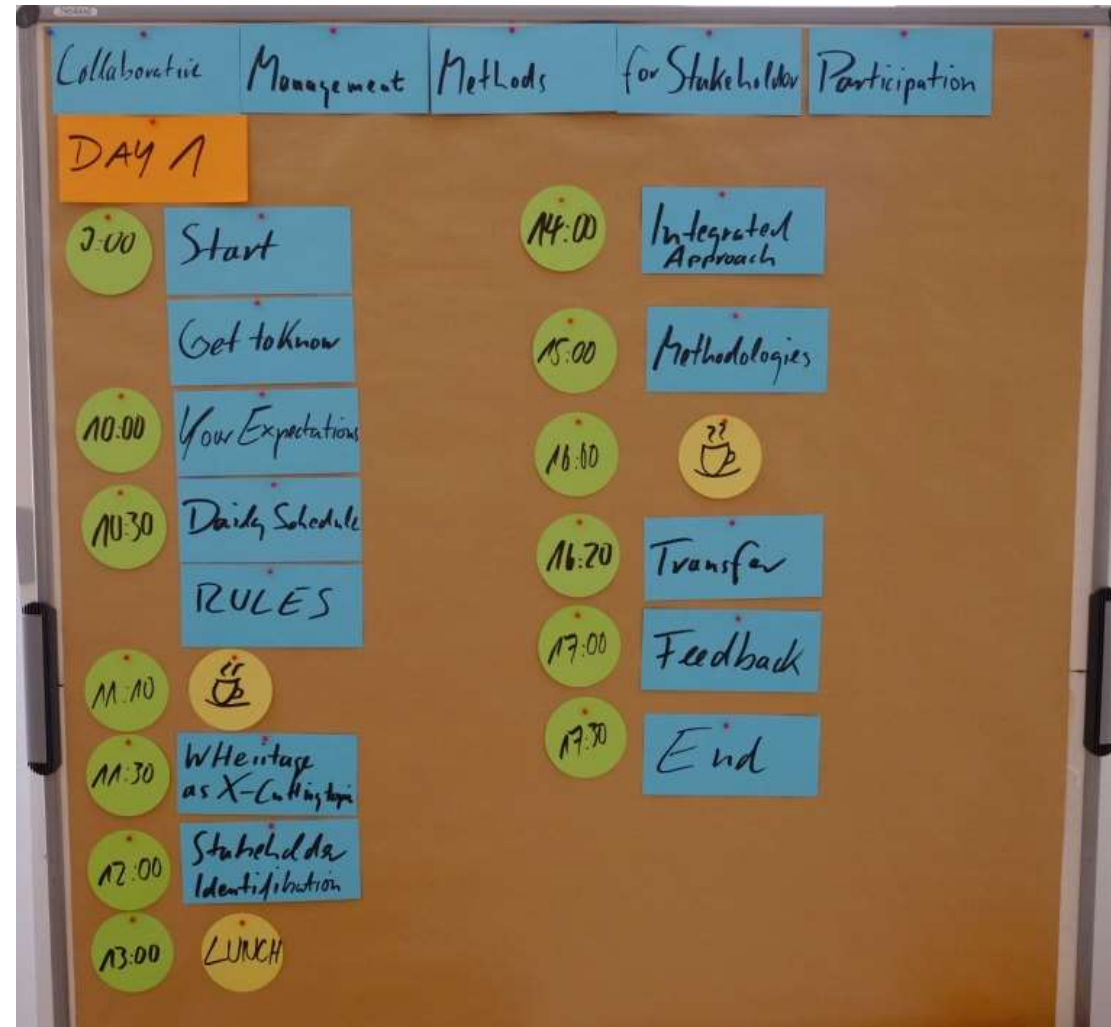 Collaborative Management Methods for Stakeholder Participation
DAY 1
9:00 Start
Get to Know
10:00 Your Expectations
10:30 Daily Schedule
RULES
11:10
11:30 WHeritage
as X-Cutting topic
12:00 Stakeholder
Identification
13:00 LUNCH
14:00 Integrated
Approach
15:00 Methodologies
16:00
16:20 Transfer
17:00 Feedback
17:30 End